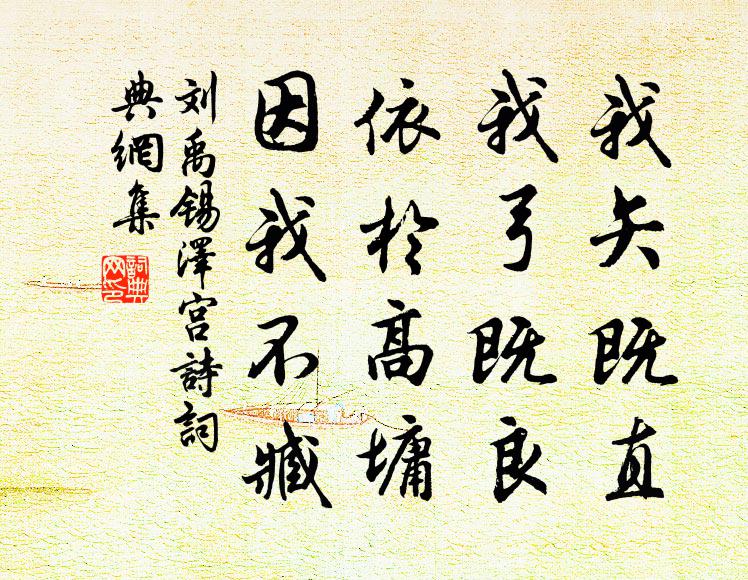 我矢既直
我弓既良
依於高墉
因我不臧
刘禹锡澤宮詩詞
典網集
詞典
网